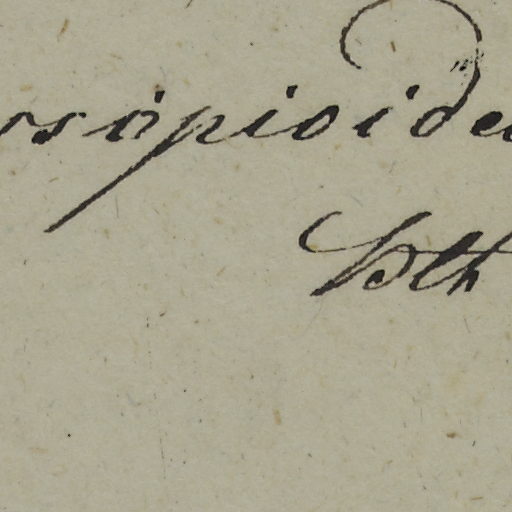 rsopioide
Bth